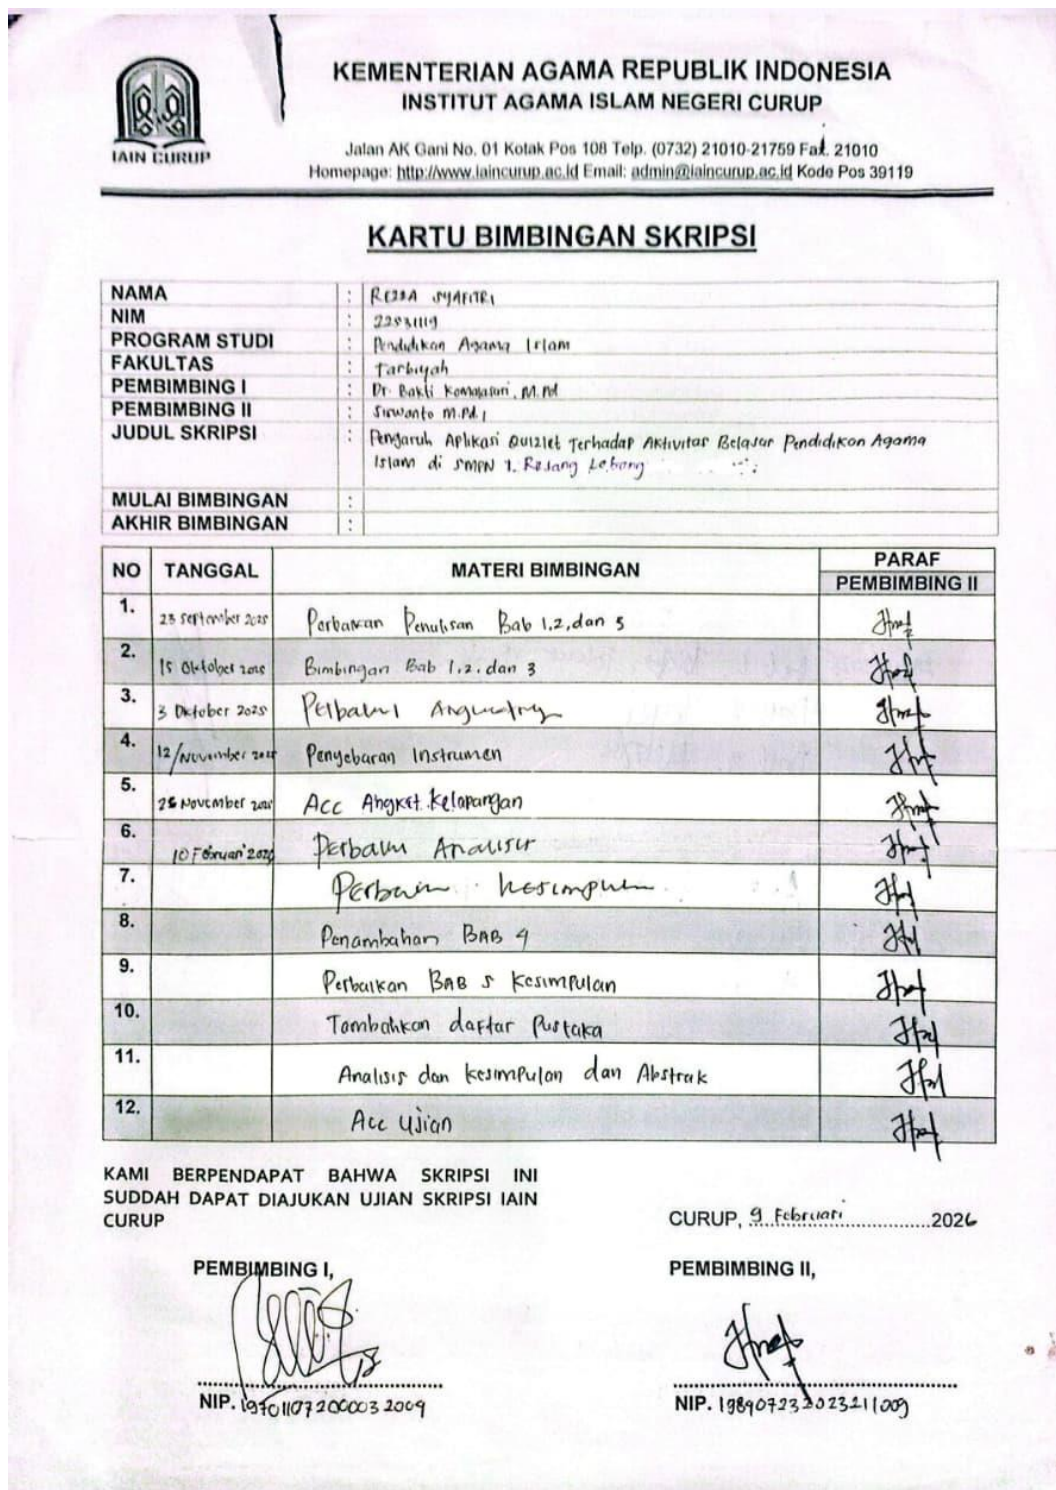 KEMENTERIAN AGAMA REPUBLIK INDONESIA
INSTITUT AGAMA ISLAM NEGERI CURUP
IAIN CURUP
Jalan AK Gani No. 01 Kotak Pos 108 Telp. (0732) 21010-21759 Fax. 21010
Homepage: http://www.iaincurup.ac.id Email: admin@iaincurup.ac.id Kode Pos 39119
KARTU BIMBINGAN SKRIPSI
NAMA : SYAFITRI
NIM : 22531119
PROGRAM STUDI : Pendidikan Agama Islam
FAKULTAS : Tarbiyah
PEMBIMBING I : Dr. Bakti Komalasari, M.Pd
PEMBIMBING II : Siswanto M.Pd.I
JUDUL SKRIPSI : Pengaruh Aplikasi Quizlet Terhadap Aktivitas Belajar Pendidikan Agama
Islam di SMPN 1. Rejang Lebong
MULAI BIMBINGAN :
AKHIR BIMBINGAN :
NO TANGGAL MATERI BIMBINGAN PARAF
PEMBIMBING II
1. 23 September 2025 Perbaikan Penulisan Bab 1,2,dan 3
2. 15 Oktober 2025 Bimbingan Bab 1.2.dan 3
3. 3 Oktober 2025
4. 12/November 2025 Penyebaran Instrumen
5. November 2025 Acc Angket kelapangan
6. 10 Februari 2026 Analisis
7. Kesimpulan
8. Penambahan BAB 4
9. Perbaikan BAB 5 Kesimpulan
10. Tambahkan daftar Pustaka
11. Analisis dan Kesimpulan dan Abstrak
12. Acc Ujian
KAMI BERPENDAPAT BAHWA SKRIPSI INI
SUDDAH DAPAT DIAJUKAN UJIAN SKRIPSI IAIN
CURUP
CURUP, 9 Februari 2026
PEMBIMBING I,
PEMBIMBING II,
NIP. 197011072000032009
NIP. 198907232023211009